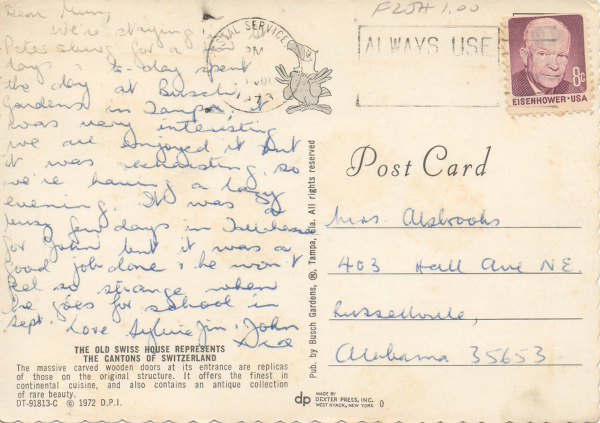 Dear Mummy,
We're staying in St
Petersburg for a few
days & to-day spent
the day at Busch
Gardens in Tampa, it
was very interesting
we all enjoyed it but
it was exhausting so
we're having a lazy
evening. It was a
busy few days in
for John but it was a
good job done & he won't
feel so strange when
he goes for school in
Sept. Love Sylvia Jim, John
THE OLD SWISS HOUSE REPRESENTS
THE CANTONS OF SWITZERLAND
The massive carved wooden doors at its entrance are replicas
of those on the original structure. It offers the finest in
continental cuisine, and also contains an antique collection
of rare beauty.
DT-91813-C © 1972 D.P.I.
Pub. by Busch Gardens, ®, Tampa, Fla. All rights reserved
POSTAL SERVICE
PM
1973
FLJH 1.00
ALWAYS USE
8c
EISENHOWER·USA
Post Card
Mrs. Alsbrooks
403 Hall Ave NE.
Russellville,
Alabama 35653
dp MADE BY
DEXTER PRESS, INC.
WEST NYACK, NEW YORK 0